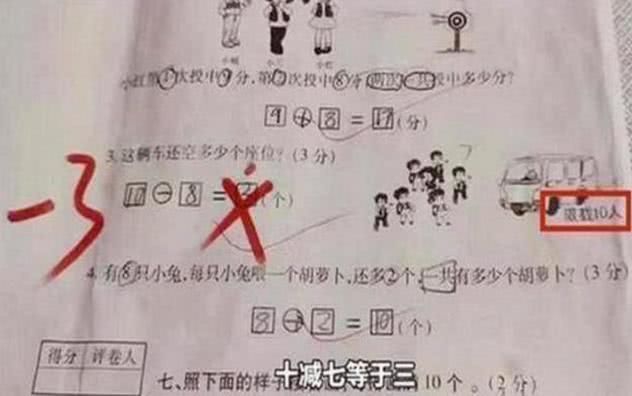 小红第1次投中9分,第2次投中8分,两次一共投中多少分?
9+8=17(分)
3.这辆车还空多少个座位?(3分)
10-8=2(个)
7
限载10人
-3
4.有8只小兔,每只小兔喂一个胡萝卜,还多2个,一共有多少个胡萝卜?(3分)
8+2=10(个)
得分 评卷人
七、照下面的样子
10个。
十减七等于三